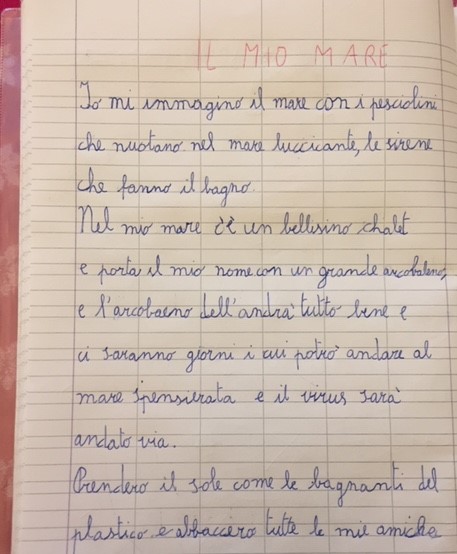 IL MIO MARE
Io mi immagino il mare con i pesciolini
che nuotano nel mare luccicante, le sirene
che fanno il bagno.
Nel mio mare c'è un bellisino chalet
e porta il mio nome con un grande arcobaleno,
e l'arcobaeno dell'andrà tutto bene e
ci saranno giorni i cui potrò andare al
mare spensierata e il virus sarà
andato via.
Prenderò il sole come le bagnanti del
plastico e abbaccerò tutte le mie amiche